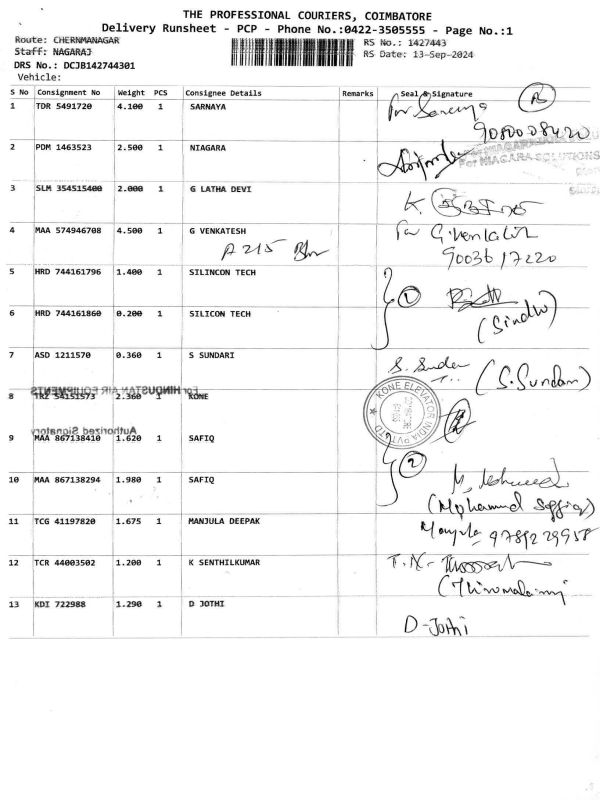 THE PROFESSIONAL COURIERS, COIMBATORE
Delivery Runsheet - PCP - Phone No.:0422-3505555 - Page No.:1
Route: CHERNMANAGAR RS No.: 1427443
Staff: NAGARAJ RS Date: 13-Sep-2024
DRS No.: DCJB142744301
Vehicle:
S No Consignment No Weight PCS Consignee Details Remarks Seal & Signature
1 TDR 5491720 4.100 1 SARNAYA For Saranya
9080008420
2 PDM 1463523 2.500 1 NIAGARA
For NIAGARA SOLUTIONS
3 SLM 354515400 2.000 1 G LATHA DEVI
4 MAA 574946708 4.500 1 G VENKATESH For G.Venkatesh
A 215 9003617220
5 HRD 744161796 1.400 1 SILINCON TECH 1
6 HRD 744161860 0.200 1 SILICON TECH (Sindhu)
7 ASD 1211570 0.360 1 S SUNDARI S. Sundari
(S.Sundari)
For HINDUSTAN AIR EQUIPMENTS
8 TRZ 54151573 2.360 1 KONE KONE ELEVATOR INDIA PVT LTD
Authorized Signatory
9 MAA 867138410 1.620 1 SAFIQ 2
10 MAA 867138294 1.980 1 SAFIQ
(Mohammed Saffiq)
11 TCG 41197820 1.675 1 MANJULA DEEPAK Manjula 9789229958
12 TCR 44003502 1.200 1 K SENTHILKUMAR T.N-
(Thirumalaisamy
13 KDI 722988 1.290 1 D JOTHI
D-Jothi